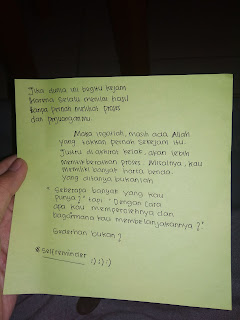 Jika dunia ini begitu kejam
karena selalu menilai hasil
tanpa pernah melihat proses
dan perjuanganmu
Maka ingatlah, masih ada Allah
yang takkan pernah sekejam itu.
Justru di akhirat kelak, akan lebih
memberatkan proses. Misalnya, kau
memiliki banyak harta benda.
yang ditanya bukanlah
"Seberapa banyak yang kau
punya?" tapi "Dengan cara
apa kau memperolehnya dan
bagaimana kau membelanjakannya?"
Sederhan bukan?
* Selfreminder :) :) :)